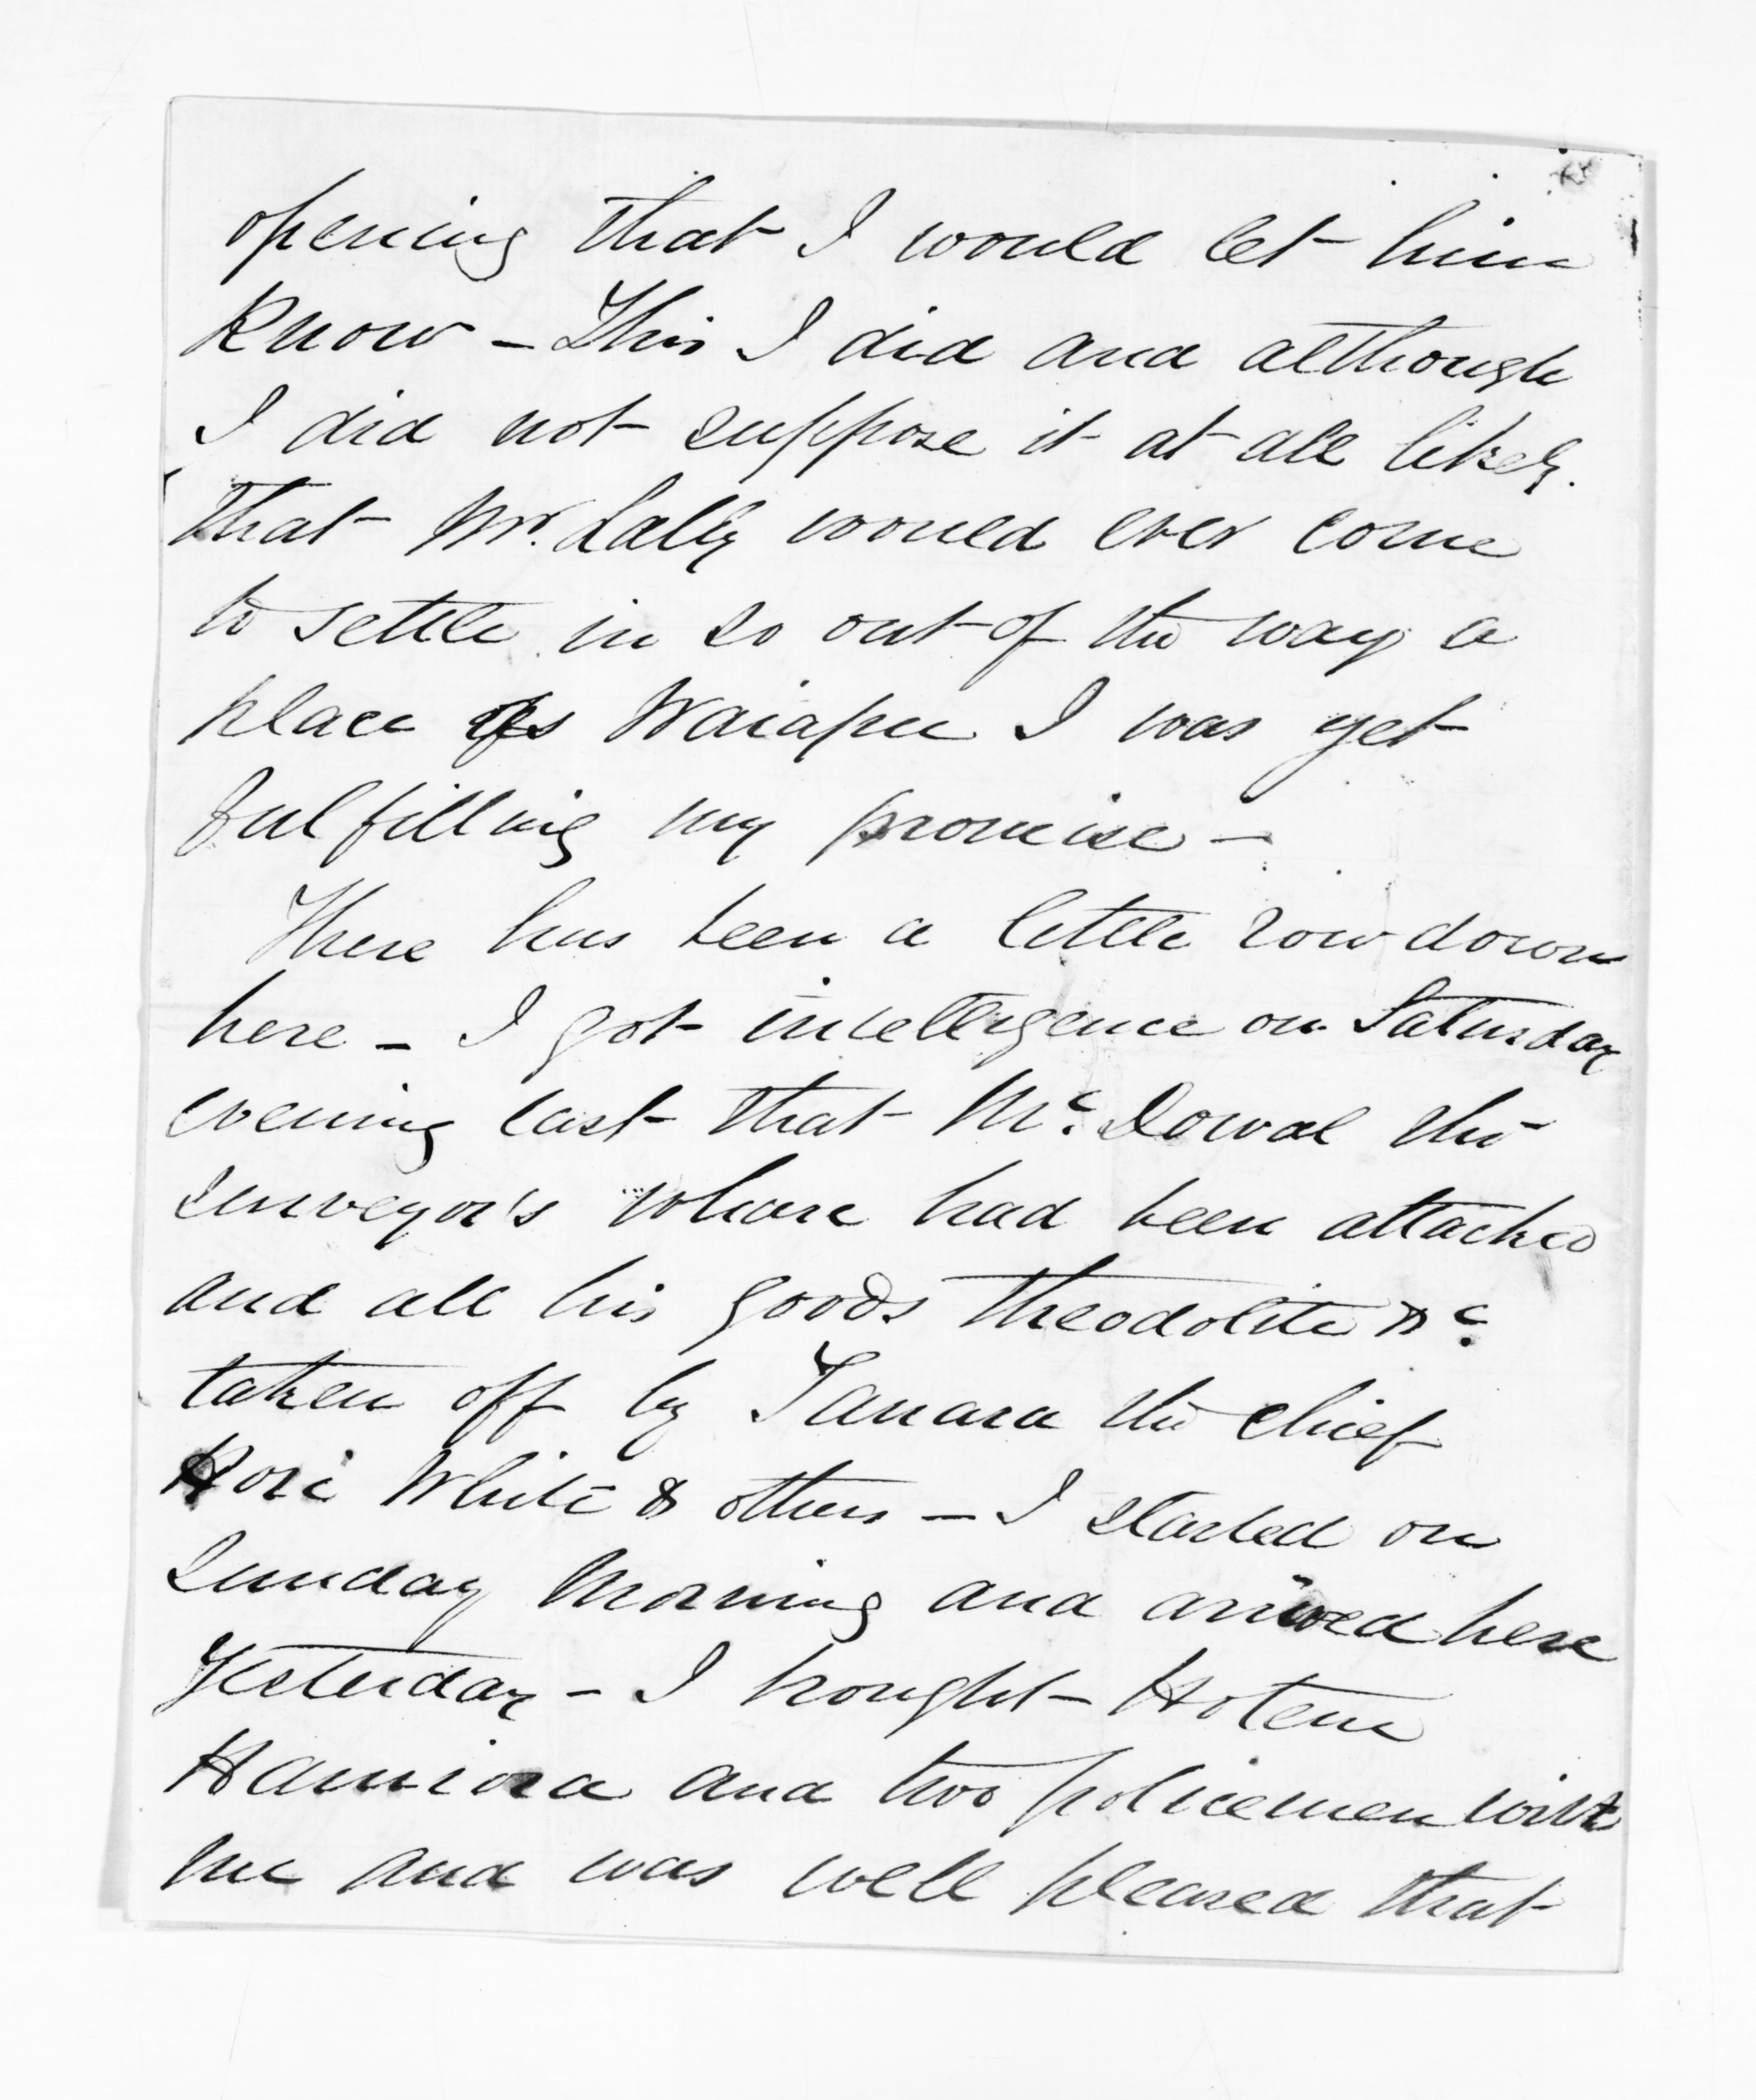 opening that I would let him
know - This I did and although
I did not suppose it at all likely
that Mr. Lally would ever come
to settle in so out of the way a
place as Waiapu I was yet
fulfilling my promise -
There has been a little row down
here - I got intelligence on Saturday
evening last that Mc. Dowal the
surveyor's whare had been attacked
and all his goods theodolite &c.
taken off by Tamara the chief
Hori White & others - I started on
Sunday Morning and arrived here
Yesterday - I brought Hotene
Hamiora and two policemen with
me and was well pleased that